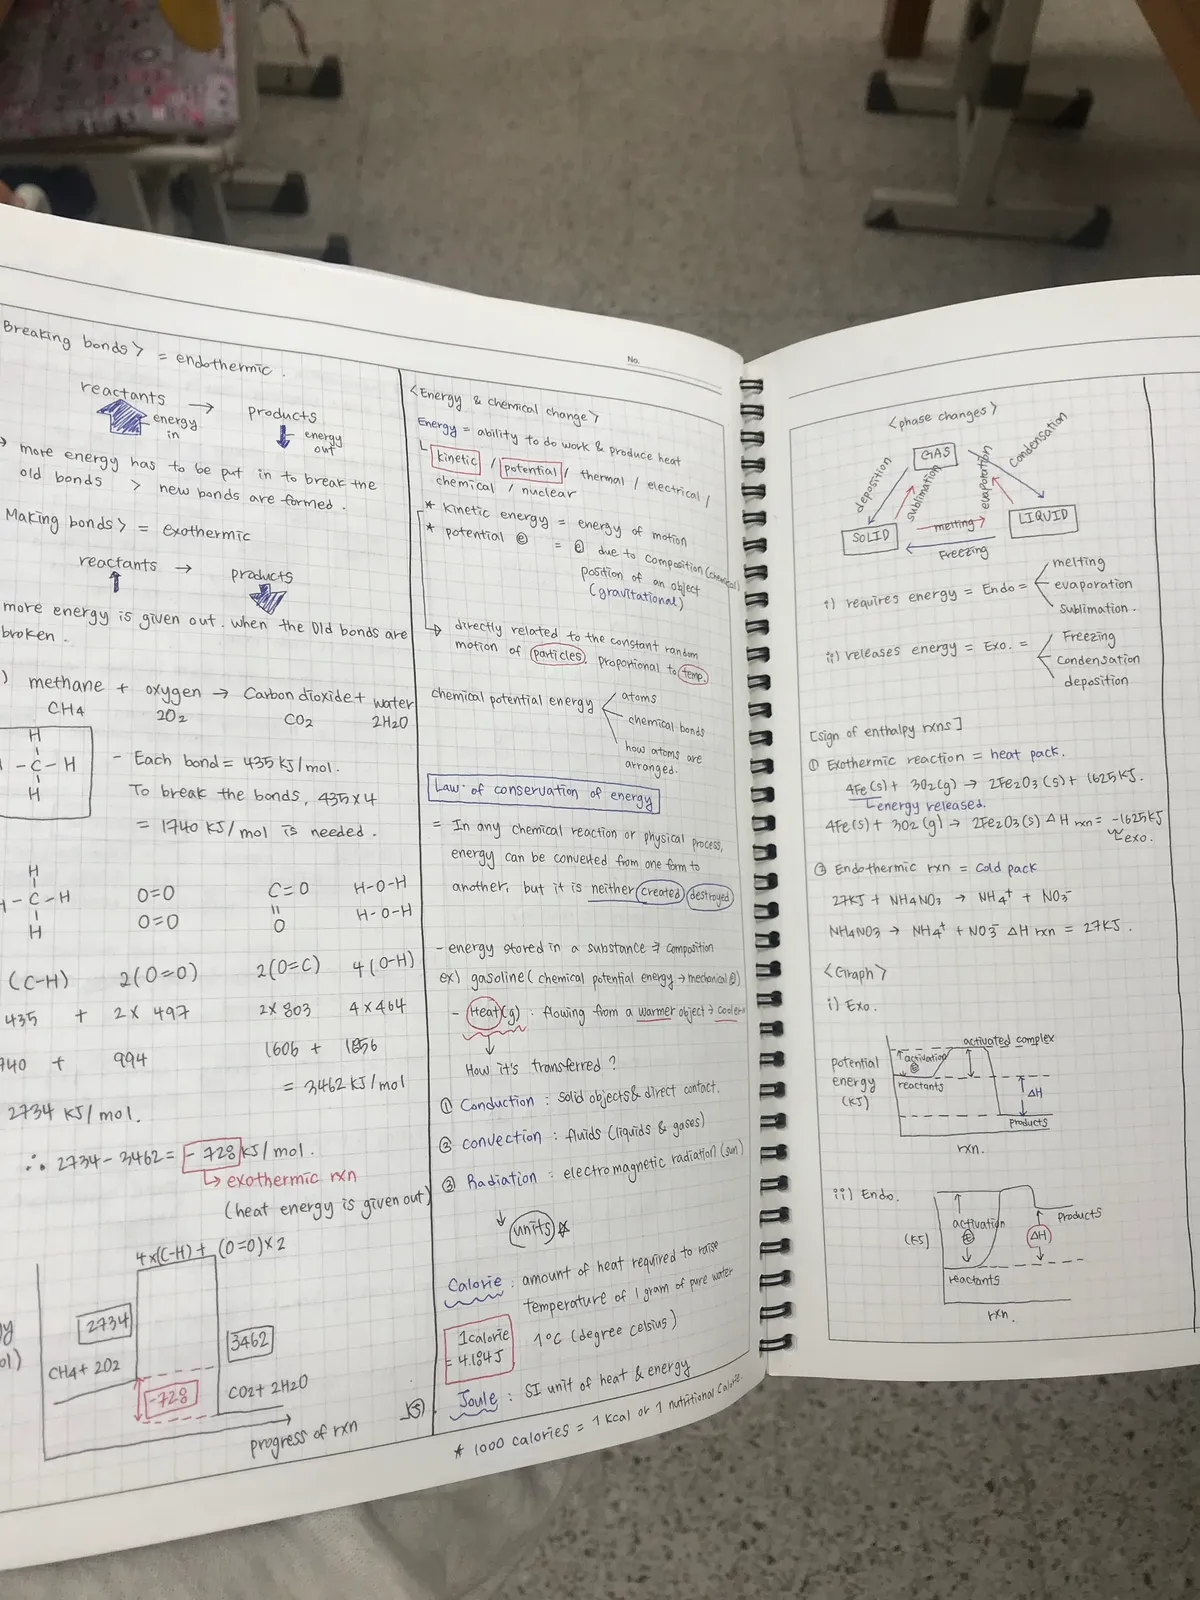 Breaking bonds > = endothermic.
reactants → products
energy in
energy out
more energy has to be put in to break the
old bonds > new bonds are formed.
Making bonds > = exothermic
reactants → products
more energy is given out when the old bonds are
broken.
) methane + oxygen → Carbon dioxide + water
CH4 2O2 CO2 2H2O
H
- C - H
H
- Each bond = 435 KJ/mol.
To break the bonds, 435x4
= 1740 KJ/mol is needed.
H
- C - H
H
O=O
O=O
C=O
O
H-O-H
H-O-H
(C-H) 2(O=O) 2(O=C) 4(O-H)
435 + 2x 497 2x 803 4x464
740 + 994 1606 + 1856
= 3462 KJ/mol
2734 KJ/mol.
∴ 2734-3462= -728 KJ/mol.
↳ exothermic rxn
(heat energy is given out)
4x(C-H)+ (O=O)x2
2734
CH4+ 2O2
-728
3462
CO2+ 2H2O
progress of rxn
No.
<Energy & chemical change>
Energy = ability to do work & produce heat
kinetic / potential / thermal / electrical /
chemical / nuclear
* Kinetic energy = energy of motion
* potential ⓔ = ⓔ due to composition (chemical)
position of an object
(gravitational)
directly related to the constant random
motion of particles, proportional to temp.
chemical potential energy
atoms
chemical bonds
how atoms are
arranged.
Law of conservation of energy
= In any chemical reaction or physical process,
energy can be converted from one form to
another, but it is neither created destroyed
- energy stored in a substance composition
ex) gasoline (chemical potential energy → mechanical ⓔ)
- Heat(g) : flowing from a warmer object → cooler
How it's transferred?
① Conduction : solid objects & direct contact.
② convection : fluids (liquids & gases)
③ Radiation : electromagnetic radiation (sun)
↓ units ☆
Calorie : amount of heat required to raise
temperature of 1 gram of pure water
1°C (degree celsius)
1calorie
= 4.184J
Joule : SI unit of heat & energy
* 1000 calories = 1 Kcal or 1 nutritional Calorie
<phase changes>
GAS
SOLID
LIQUID
deposition
sublimation
evaportion
Condensation
melting
Freezing
i) requires energy = Endo =
melting
evaporation
sublimation.
ii) releases energy = Exo. =
Freezing
Condensation
deposition
[sign of enthalpy rxns]
① Exothermic reaction = heat pack.
4Fe(s)+ 3O2(g) → 2Fe2O3(s)+ 1625KJ.
energy released.
4Fe(s)+ 3O2(g) → 2Fe2O3(s) ΔH rxn= -1625KJ
exo.
② Endothermic rxn = Cold pack
27KJ + NH4NO3 → NH4+ + NO3-
NH4NO3 → NH4+ + NO3- ΔH rxn = 27KJ.
<Graph>
i) Exo.
potential
energy
(KJ)
activation
ⓔ
activated complex
reactants
ΔH
products
rxn.
ii) Endo.
(KJ)
activation
ⓔ
reactants
ΔH
products
rxn.